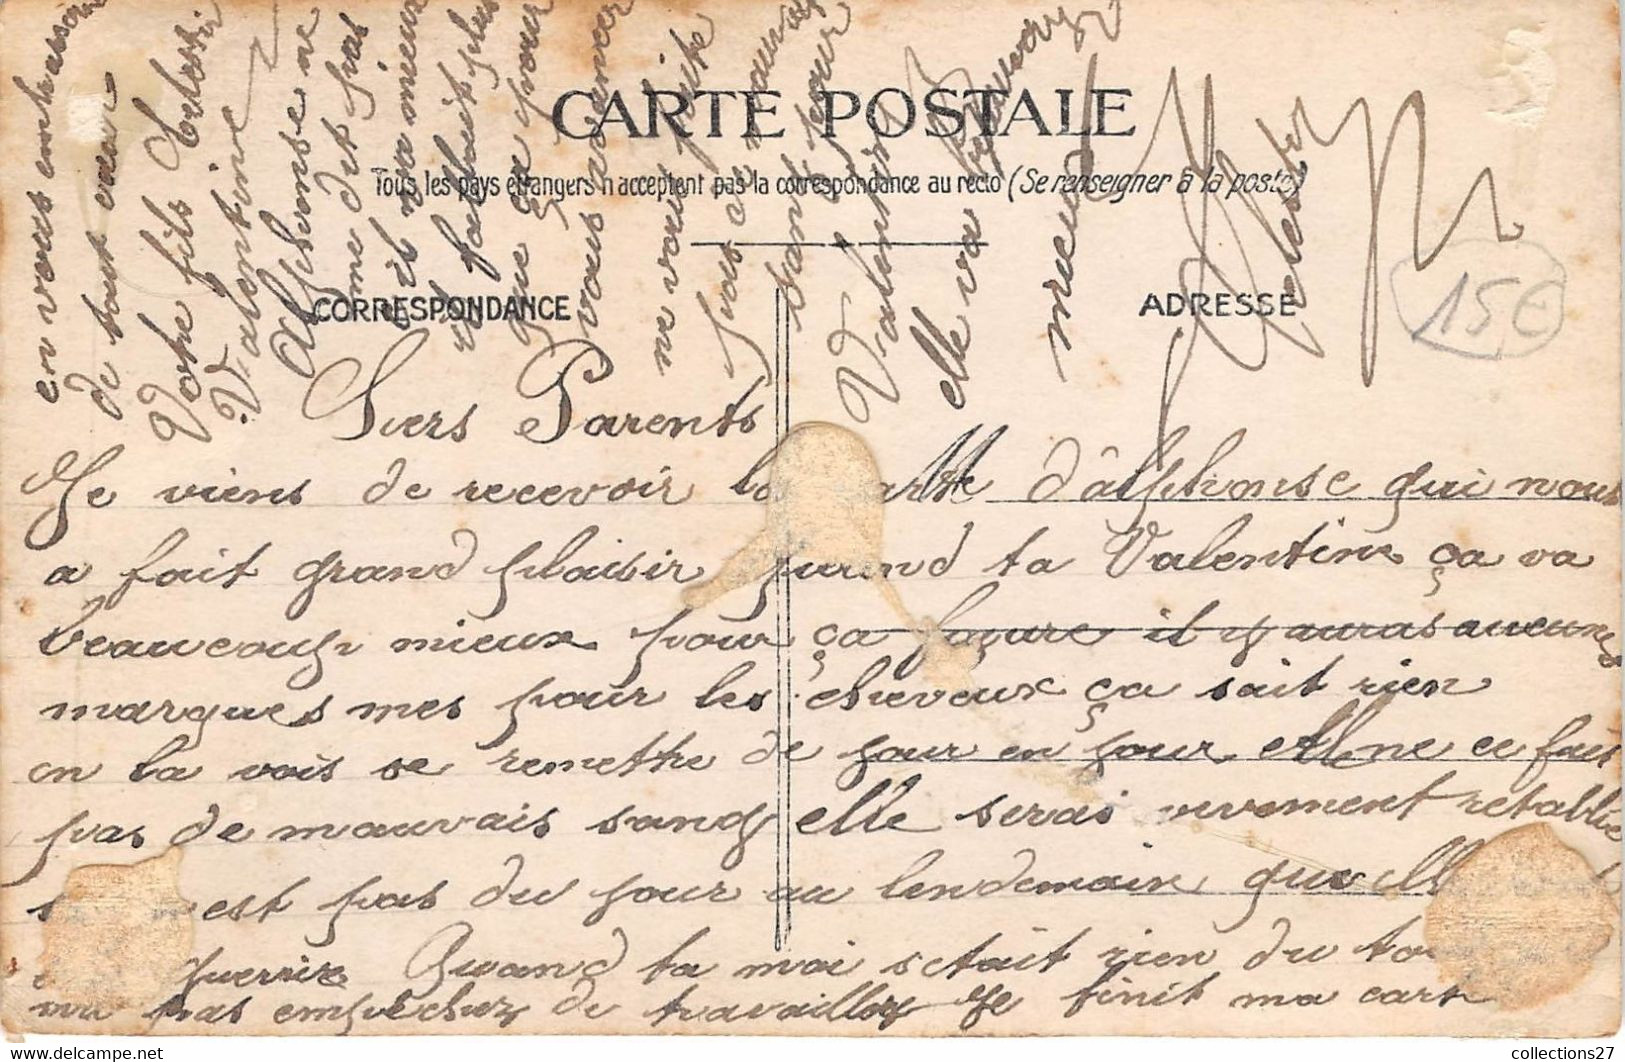 CARTE POSTALE
Tous les pays étrangers n'acceptent pas la correspondance au recto (Se renseigner à la poste)
CORRESPONDANCE
ADRESSE
15€
Parents
Je viens de recevoir la carte d'alphonse qui nous
a fait grand plaisir quand ta Valentine ça va
beaucoup mieux pour ça figure il y auras aucunes
marques mes pour les cheveux ça sait rien
on la vois se remettre de jour en jour elle ne ce fais
pas de mauvais sang elle serai vivement retablie
est pas du jour au lendemain que elle
guerrire Quand ta moi setait rien du tou
ma pas empecher de travailler Je finit ma carte
en vous embrassant
de tout cœur
Votre fils Celestin
Valentine
Alphonse ne
me dit pas
s'il va mieux
il fallait plus
que ça pour
vous avancer
ne vous faite
pas de mauvais
sang pour
Valentine
elle va beaucoup
mieux
Celestin
collections27